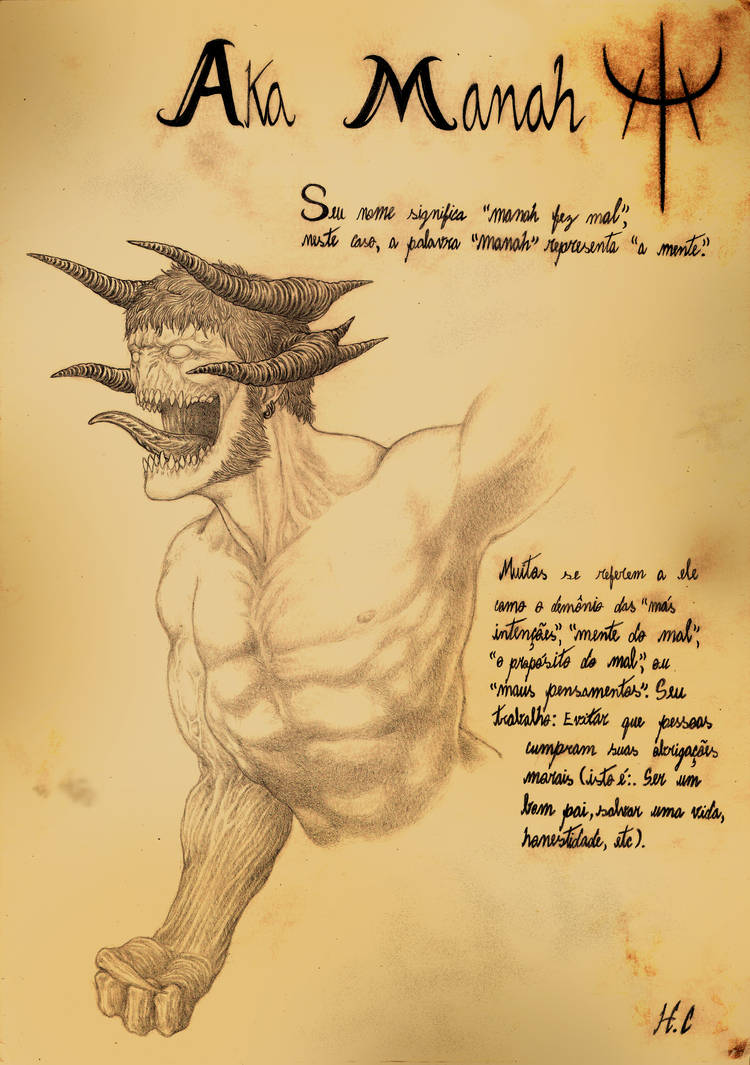 Aka Manah
Seu nome significa "manah fez mal",
neste caso, a palavra "manah" representa "a mente".
Muitos se referem a ele
como o demônio das "más
intenções", "mente do mal",
"o propósito do mal", ou
"maus pensamentos". Seu
trabalho: Evitar que pessoas
cumpram suas obrigações
morais (isto é:. Ser um
bom pai, salvar uma vida,
honestidade, etc).
H.C